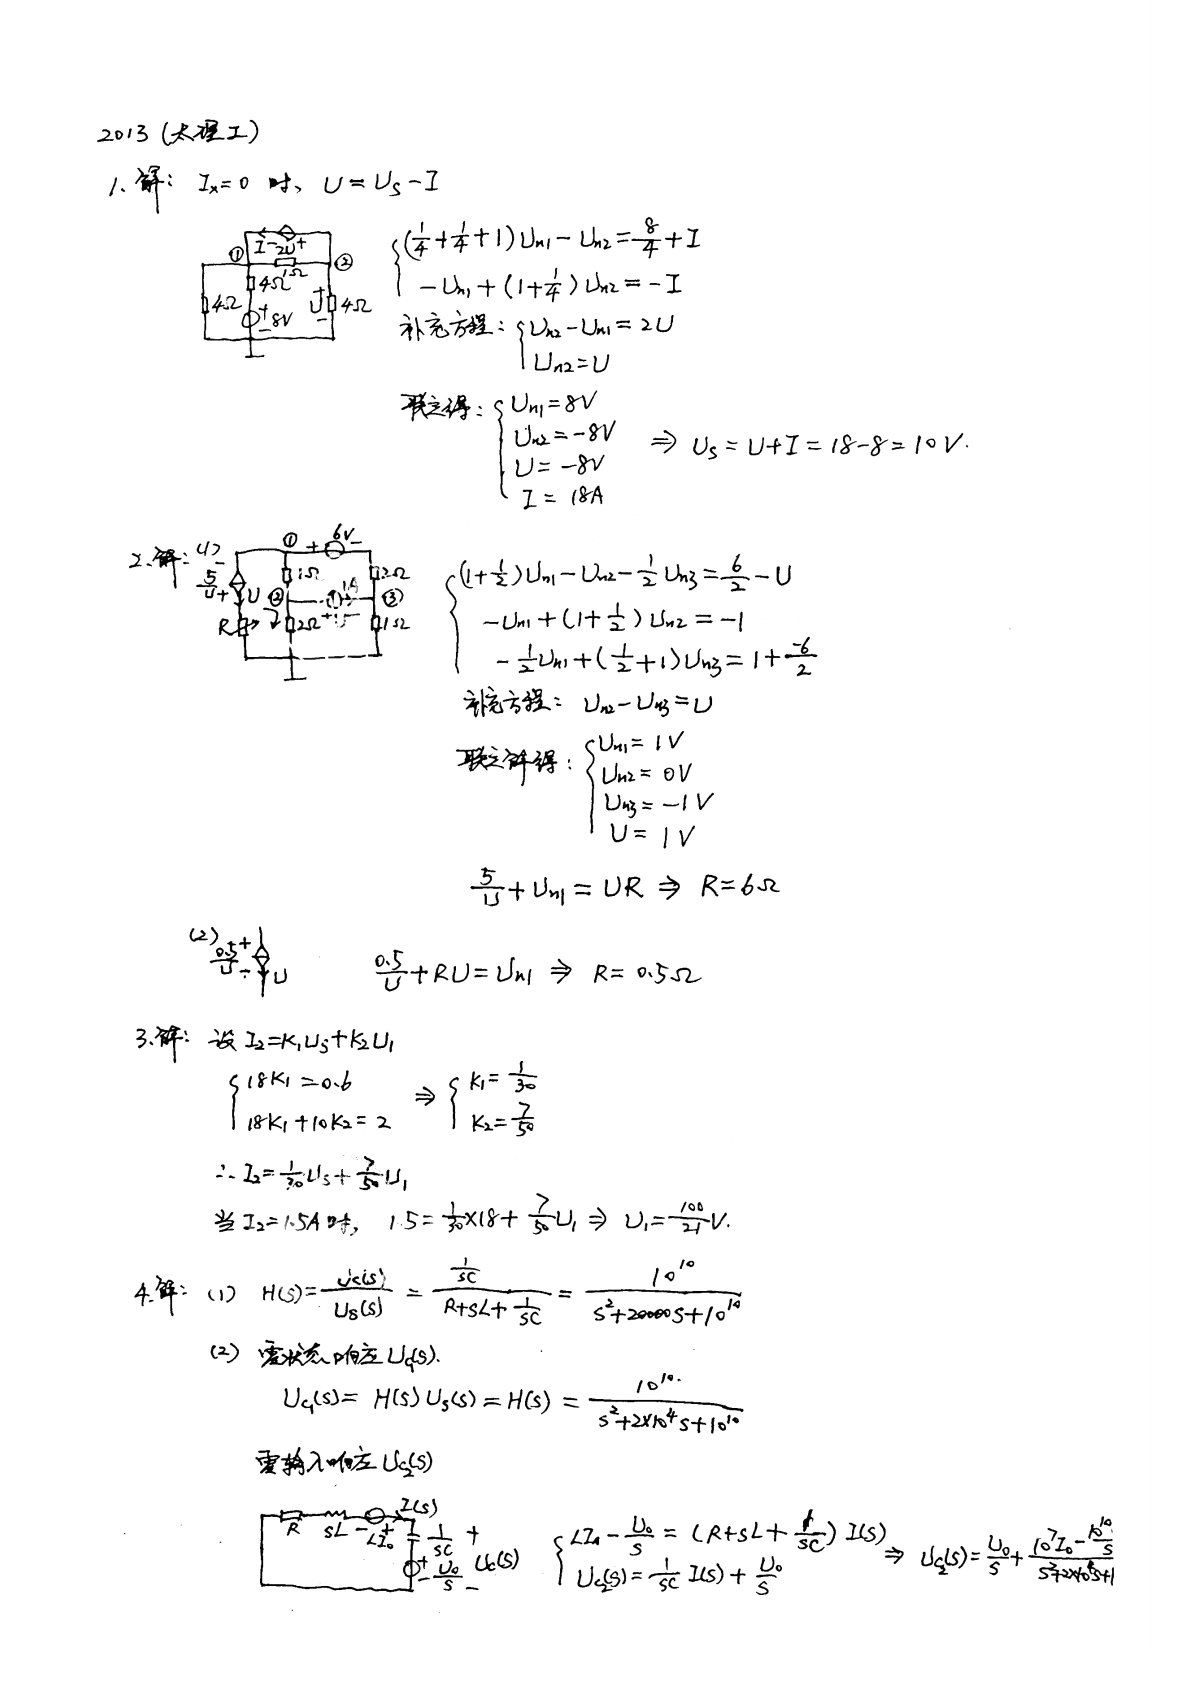 2013 (太理工)
1. 解: Iₓ=0 时, U=U_S-I
① I -2U+ ② 1Ω
4Ω 4Ω +8V- U+- 4Ω
(1/4+1/4+1)U_n1-U_n2=8/4+I
-U_n1+(1+1/4)U_n2=-I
补充方程: U_n2-U_n1=2U
U_n2=U
联立得: U_n1=8V
U_n2=-8V
U=-8V
I=18A
⇒ U_S=U+I=18-8=10V.
2. 解: (1)
① +6V- 5/U -+ U 1Ω 2Ω ② 1A ③ R 2Ω +U- 1Ω
(1+1/2)U_n1-U_n2-1/2U_n3=6/2-U
-U_n1+(1+1/2)U_n2=-1
-1/2U_n1+(1/2+1)U_n3=1+-6/2
补充方程: U_n2-U_n3=U
联立解得: U_n1=1V
U_n2=0V
U_n3=-1V
U=1V
5/U+U_n1=UR ⇒ R=6Ω
(2) 0.5/U +- U
0.5/U+RU=U_n1 ⇒ R=0.5Ω
3. 解: 设 I₂=K₁U_S+K₂U₁
18K₁=0.6
18K₁+10K₂=2
⇒ K₁=1/30
K₂=7/50
∴ I₂=1/30U_S+7/50U₁
当I₂=1.5A时, 1.5=1/30×18+7/50U₁ ⇒ U₁=100/21V.
4. 解: (1) H(s)=U_C(s)/U_S(s)=(1/SC)/(R+SL+1/SC)=10¹⁰/(S²+20000S+10¹⁰)
(2) 零状态响应U_C1(s).
U_C1(s)=H(s)U_S(s)=H(s)=10¹⁰/(S²+2×10⁴S+10¹⁰)
零输入响应U_C2(s)
R SL -LI₀+ I(s) 1/SC +U₀/S- +U_C(s)-
LI₀-U₀/S=(R+SL+1/SC)I(s)
U_C2(s)=1/SC I(s)+U₀/S
⇒ U_C2(s)=U₀/S+(10⁷I₀-10¹⁰/S)/(S²+2×10⁴S+1